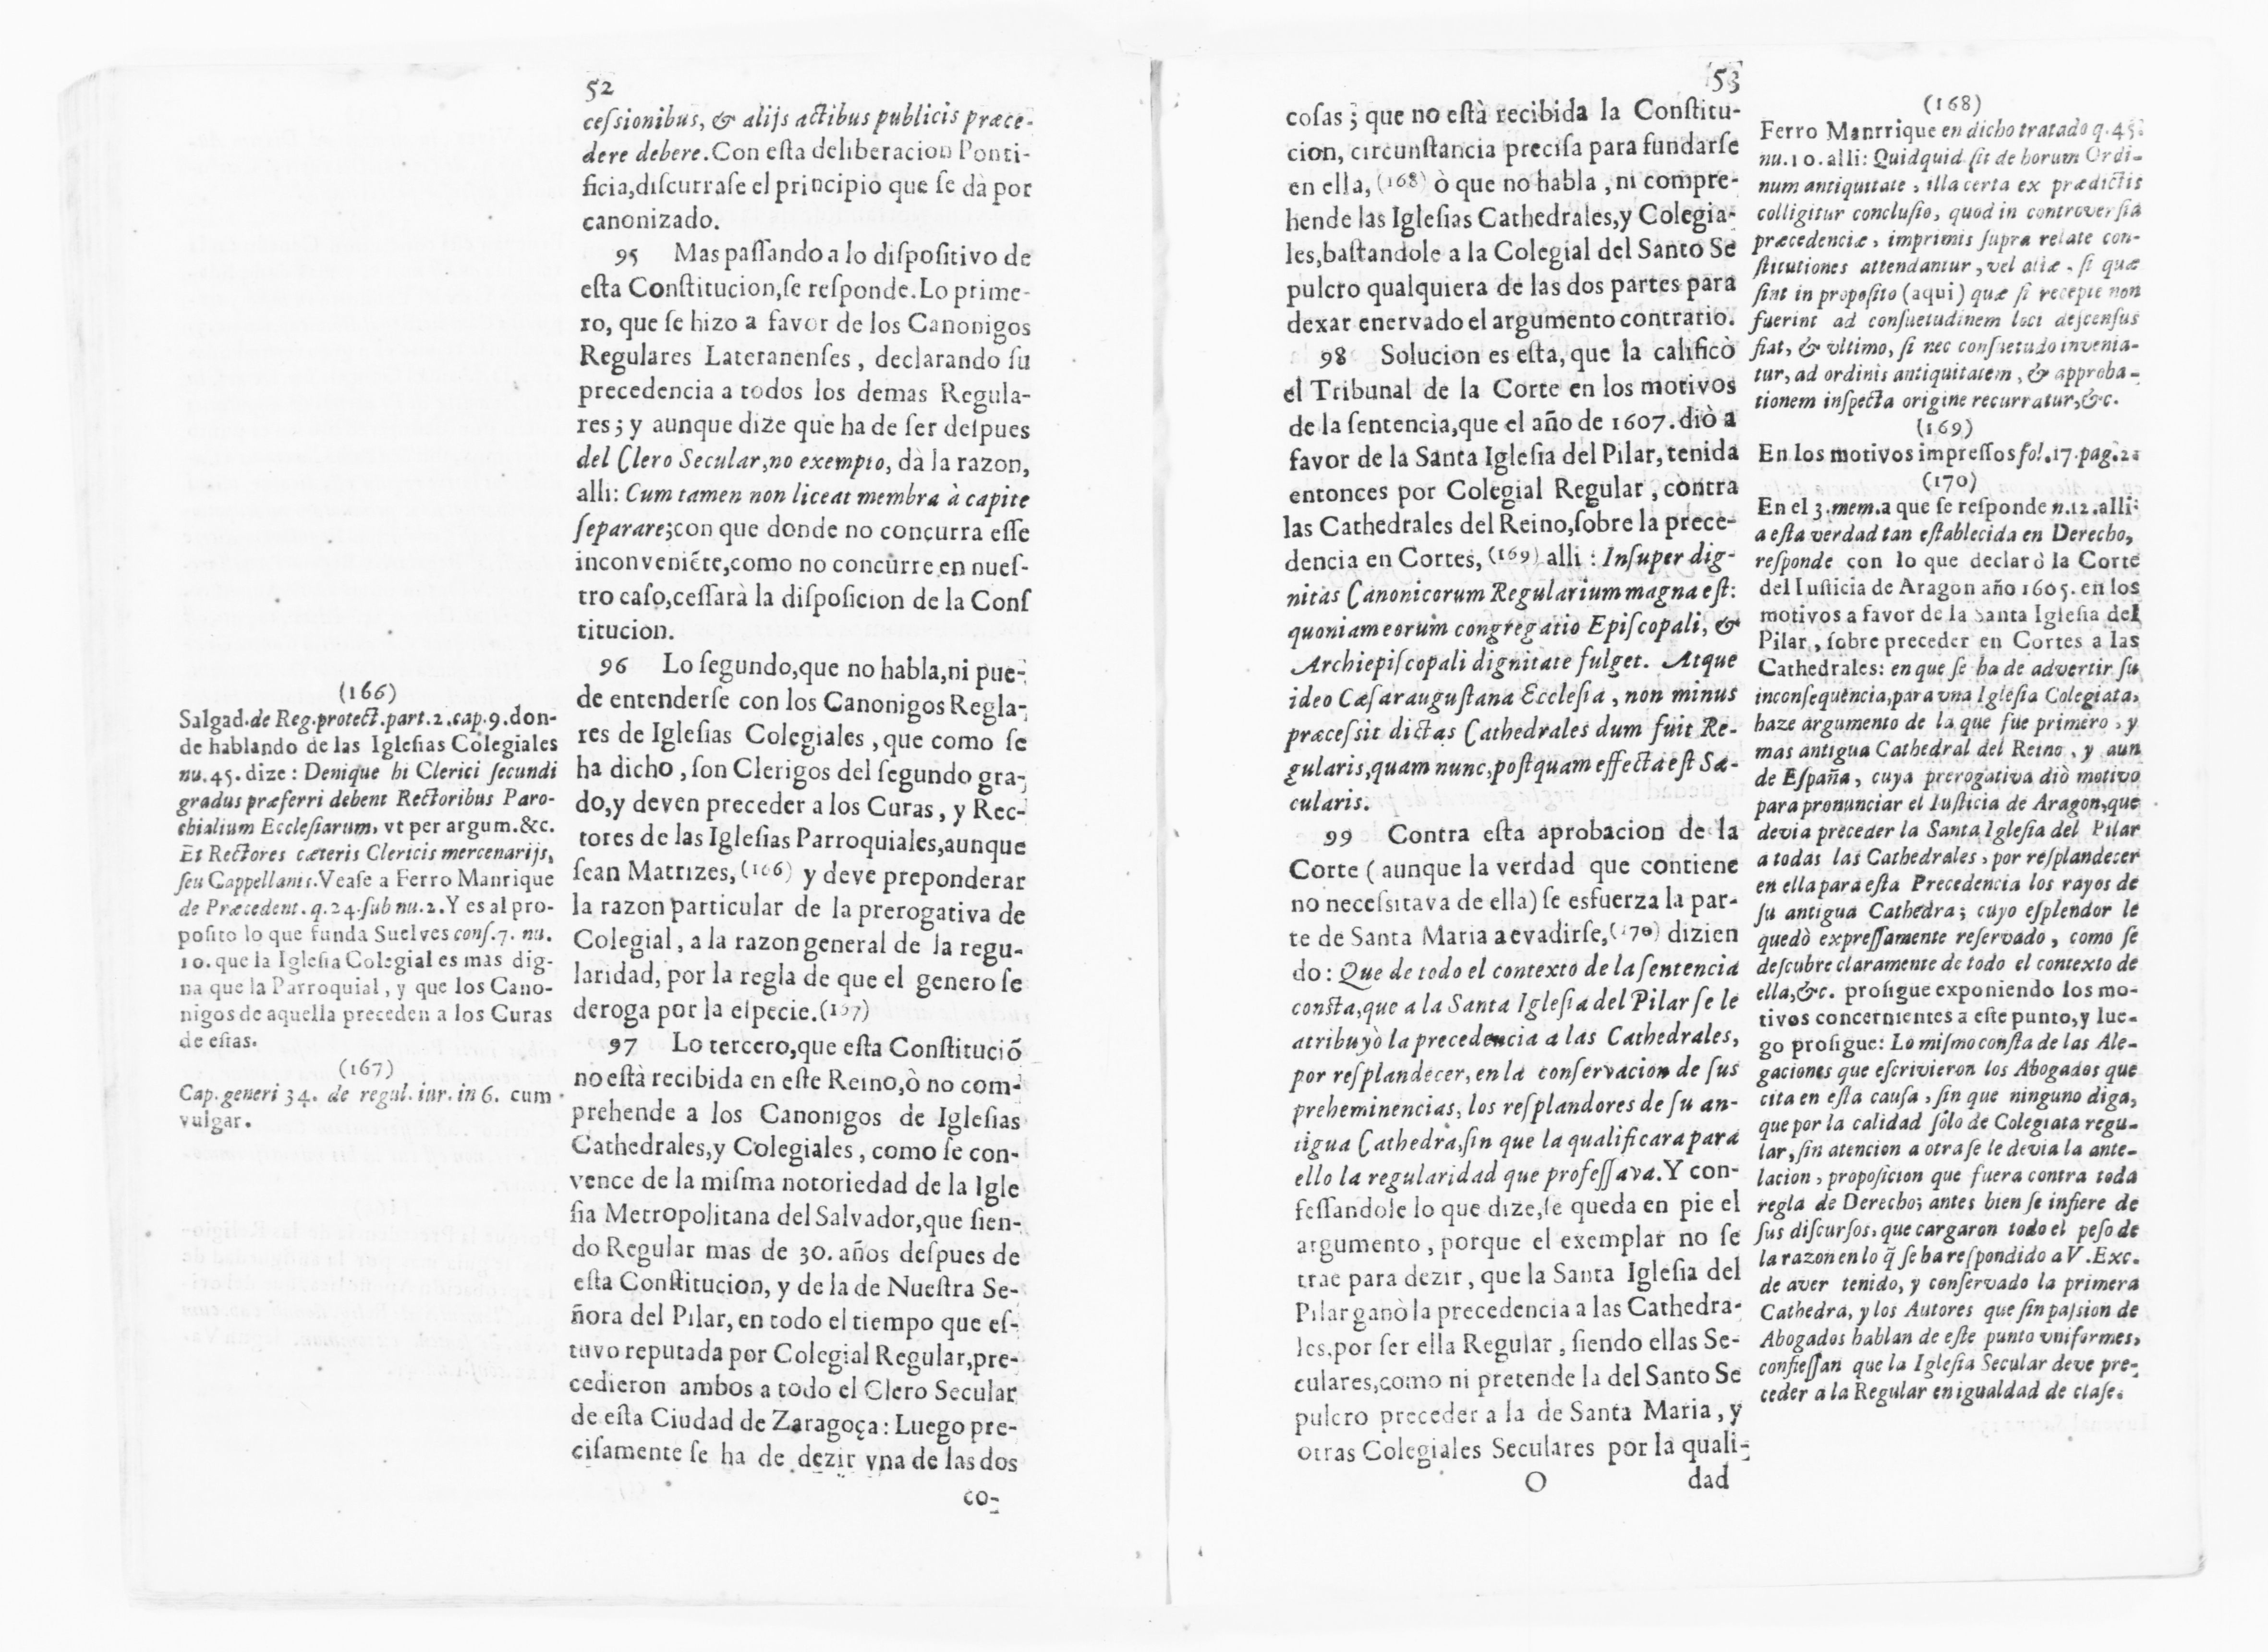 52
cessionibus, & alijs actibus publicis præce-
dere debere. Con esta deliberacion Ponti-
ficia, discurrase el principio que se dà por
canonizado.
95 Mas passando a lo dispositivo de
esta Constitucion, se responde. Lo prime-
ro, que se hizo a favor de los Canonigos
Regulares Lateranenses, declarando su
precedencia a todos los demas Regula-
res; y aunque dize que ha de ser despues
del Clero Secular, no exempto, dà la razon,
alli: Cum tamen non liceat membra à capite
separare; con que donde no concurra esse
inconveniẽte, como no concurre en nues-
tro caso, cessarà la disposicion de la Cons
titucion.
96 Lo segundo, que no habla, ni pue-
de entenderse con los Canonigos Regla-
res de Iglesias Colegiales, que como se
ha dicho, son Clerigos del segundo gra-
do, y deven preceder a los Curas, y Rec-
tores de las Iglesias Parroquiales, aunque
sean Matrizes, (166) y deve preponderar
la razon particular de la prerogativa de
Colegial, a la razon general de la regu-
laridad, por la regla de que el genero se
deroga por la especie. (167)
97 Lo tercero, que esta Constitució
no està recibida en este Reino, ò no com-
prehende a los Canonigos de Iglesias
Cathedrales, y Colegiales, como se con-
vence de la misma notoriedad de la Igle
sia Metropolitana del Salvador, que sien-
do Regular mas de 30. años despues de
esta Constitucion, y de la de Nuestra Se-
ñora del Pilar, en todo el tiempo que es-
tuvo reputada por Colegial Regular, pre-
cedieron ambos a todo el Clero Secular
de esta Ciudad de Zaragoça: Luego pre-
cisamente se ha de dezir vna de las dos
co-
(166)
Salgad. de Reg. protect. part. 2. cap. 9. don-
de hablando de las Iglesias Colegiales
nu. 45. dize: Denique hi Clerici secundi
gradus præferri debent Rectoribus Paro-
chialium Ecclesiarum, vt per argum. &c.
Et Rectores cæteris Clericis mercenarijs,
seu Cappellanis. Vease a Ferro Manrique
de Præcedent. q. 24. sub nu. 2. Y es al pro-
posito lo que funda Suelves cons. 7. nu.
10. que la Iglesia Colegial es mas dig-
na que la Parroquial, y que los Cano-
nigos de aquella preceden a los Curas
de estas.
(167)
Cap. generi 34. de regul. iur. in 6. cum
vulgar.
53
cosas; que no està recibida la Constitu-
cion, circunstancia precisa para fundarse
en ella, (168) ò que no habla, ni compre-
hende las Iglesias Cathedrales, y Colegia-
les, bastandole a la Colegial del Santo Se
pulcro qualquiera de las dos partes para
dexar enervado el argumento contrario.
98 Solucion es esta, que la calificò
el Tribunal de la Corte en los motivos
de la sentencia, que el año de 1607. diò a
favor de la Santa Iglesia del Pilar, tenida
entonces por Colegial Regular, còntra
las Cathedrales del Reino, sobre la prece-
dencia en Cortes, (169) alli: Insuper dig-
nitas Canonicorum Regularium magna est:
quoniam eorum congregatio Episcopali, &
Archiepiscopali dignitate fulget. Atque
ideo Cæsaraugustana Ecclesia, non minus
præcessit dictas Cathedrales dum fuit Re-
gularis, quam nunc, postquam effecta est Sæ-
cularis.
99 Contra esta aprobacion de la
Corte (aunque la verdad que contiene
no necessitava de ella) se esfuerza la par-
te de Santa Maria a evadirse, (170) dizien
do: Que de todo el contexto de la sentencia
consta, que a la Santa Iglesia del Pilar se le
atribuyò la precedencia a las Cathedrales,
por resplandecer, en la conservacion de sus
preheminencias, los resplandores de su an-
tigua Cathedra, sin que la qualificara para
ello la regularidad que professava. Y con-
fessandole lo que dize, se queda en pie el
argumento, porque el exemplar no se
trae para dezir, que la Santa Iglesia del
Pilar ganò la precedencia a las Cathedra-
les, por ser ella Regular, siendo ellas Se-
culares, como ni pretende la del Santo Se
pulcro preceder a la de Santa Maria, y
otras Colegiales Seculares por la quali-
O dad
(168)
Ferro Manrrique en dicho tratado q. 45.
nu. 10. alli: Quidquid sit de horum Ordi-
num antiquitate, illa certa ex prædictis
colligitur conclusio, quod in controversia
præcedenciæ, imprimis supra relate con-
stitutiones attendantur, vel aliæ, si quæ
sint in proposito (aqui) quæ si recepte non
fuerint ad consuetudinem loci descensus
fiat, & vltimo, si nec consuetudo invenia-
tur, ad ordinis antiquitatem, & approba-
tionem inspecta origine recurratur, &c.
(169)
En los motivos impressos fol. 17. pag. 2.
(170)
En el 3. mem. a que se responde n. 12. alli:
a esta verdad tan establecida en Derecho,
responde con lo que declarò la Corte
del Iusticia de Aragon año 1605. en los
motivos a favor de la Santa Iglesia del
Pilar, sobre preceder en Cortes a las
Cathedrales: en que se ha de advertir su
inconsequencia, para vna Iglesia Colegiata,
haze argumento de la que fue primero, y
mas antigua Cathedral del Reino, y aun
de España, cuya prerogativa diò motivo
para pronunciar el Iusticia de Aragon, que
devia preceder la Santa Iglesia del Pilar
a todas las Cathedrales, por resplandecer
en ella para esta Precedencia los rayos de
su antigua Cathedra; cuyo esplendor le
quedò expressamente reservado, como se
descubre claramente de todo el contexto de
ella, &c. prosigue exponiendo los mo-
tivos concernientes a este punto, y lue-
go prosigue: Lo mismo consta de las Ale-
gaciones que escrivieron los Abogados que
cita en esta causa, sin que ninguno diga,
que por la calidad sólo de Colegiata regu-
lar, sin atencion a otra se le devia la ante-
lacion, proposicion que fuera contra toda
regla de Derecho; antes bien se infiere de
sus discursos, que cargaron todo el peso de
la razon en lo q̃ se ha respondido a V. Exc.
de aver tenido, y conservado la primera
Cathedra, y los Autores que sin passion de
Abogados hablan de este punto vniformes,
confiessan que la Iglesia Secular deve pre-
ceder a la Regular en igualdad de clase.